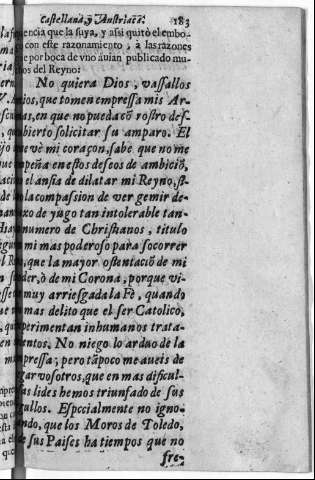 Castellana, y Austriaca. 183
uencia que la suya, y assi quitò el embo-
con este razonamiento, à las razones
e por boca de vno auian publicado mu-
os del Reyno:
No quiera Dios, vassallos
ios, que tomen empressa mis Ar-
as, en que no pueda cõ rostro des-
ubierto solicitar su amparo. El
vè mi coraçon, sabe que no me
peña en estos deseos de ambiciõ,
el ansia de dilatar mi Reyno, si-
la compassion de ver gemir de-
xo de yugo tan intolerable tan-
numero de Christianos, titulo
mi mas poderoso para socorrer
, que la mayor ostentaciõ de mi
der, ò de mi Corona, porque vi-
muy arriesgada la Fè, quando
e mas delito que el ser Catolico,
perimentan inhumanos trata-
entos. No niego lo arduo de la
pressa; pero tãpoco me aueis de
gar vosotros, que en mas dificul-
as lides hemos triunfado de sus
gullos. Especialmente no igno-
ndo, que los Moros de Toledo,
e sus Paises ha tiempos que no
fre-